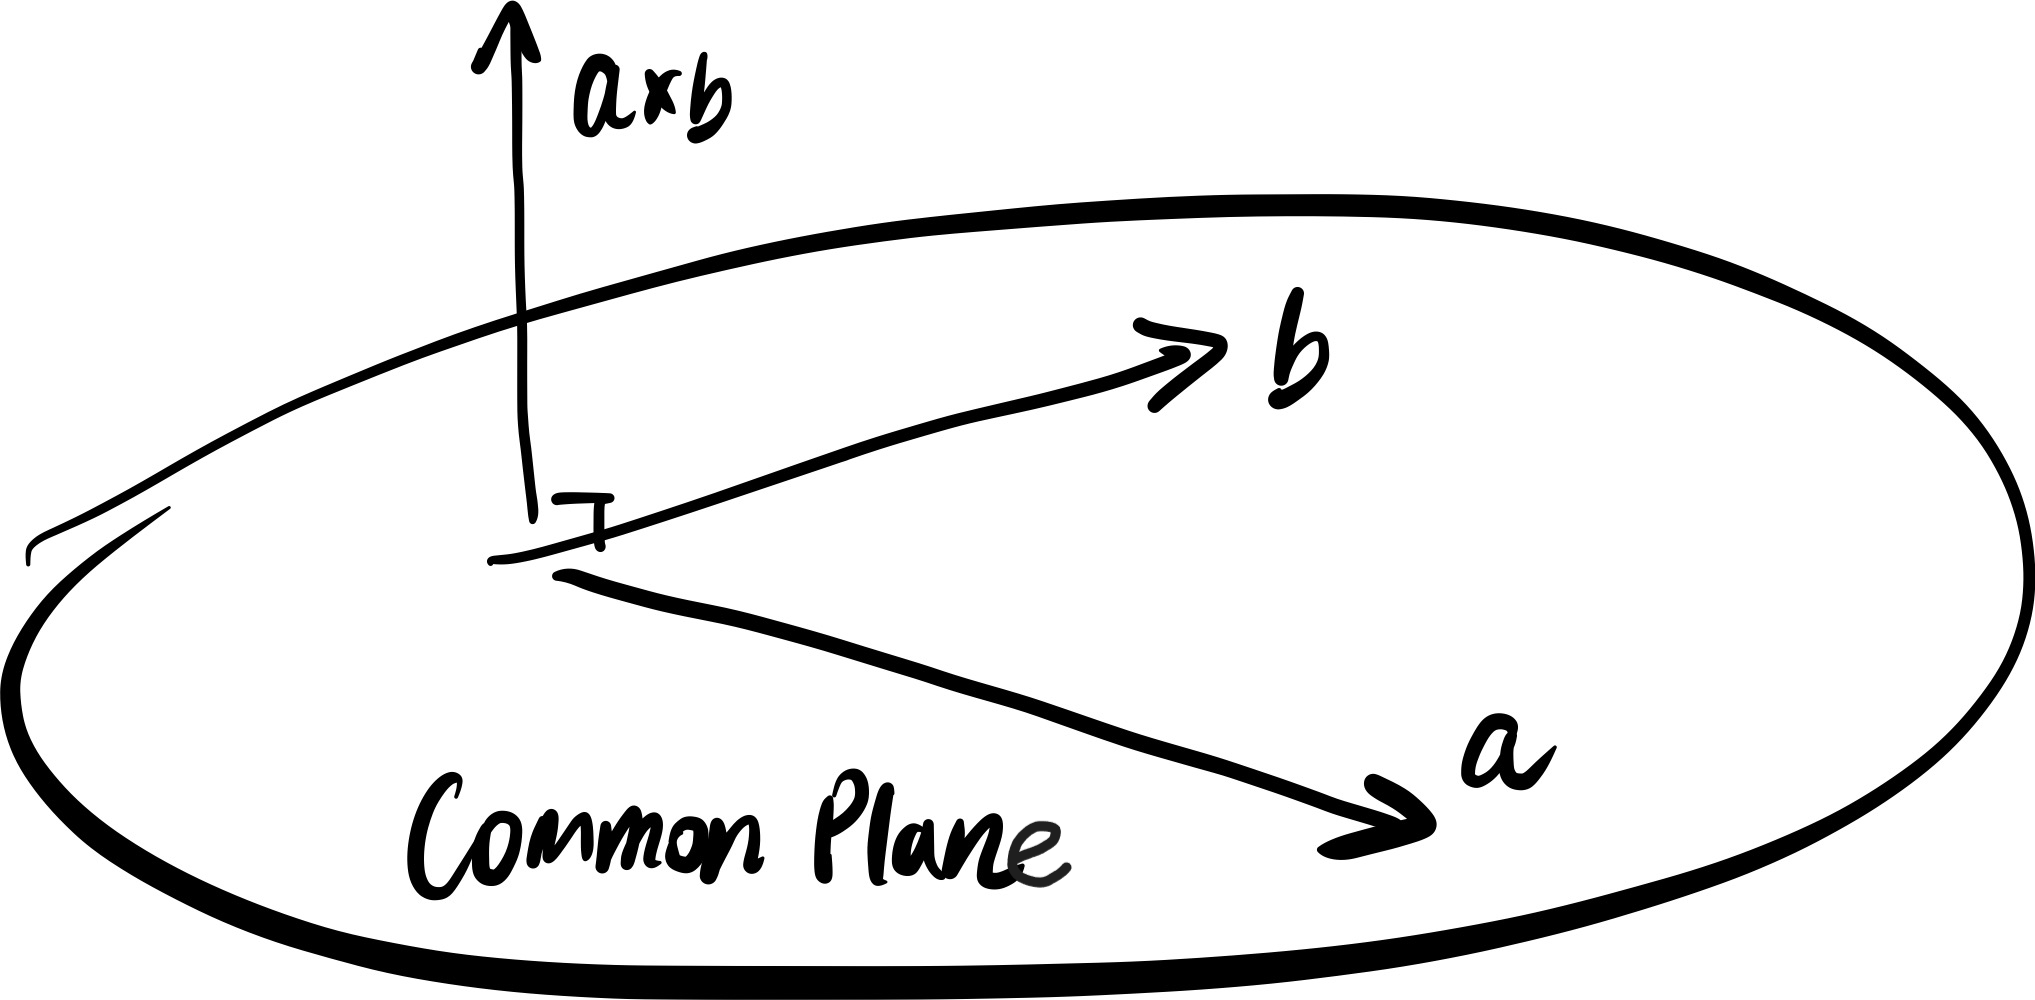 a×b
b
a
Common Plane